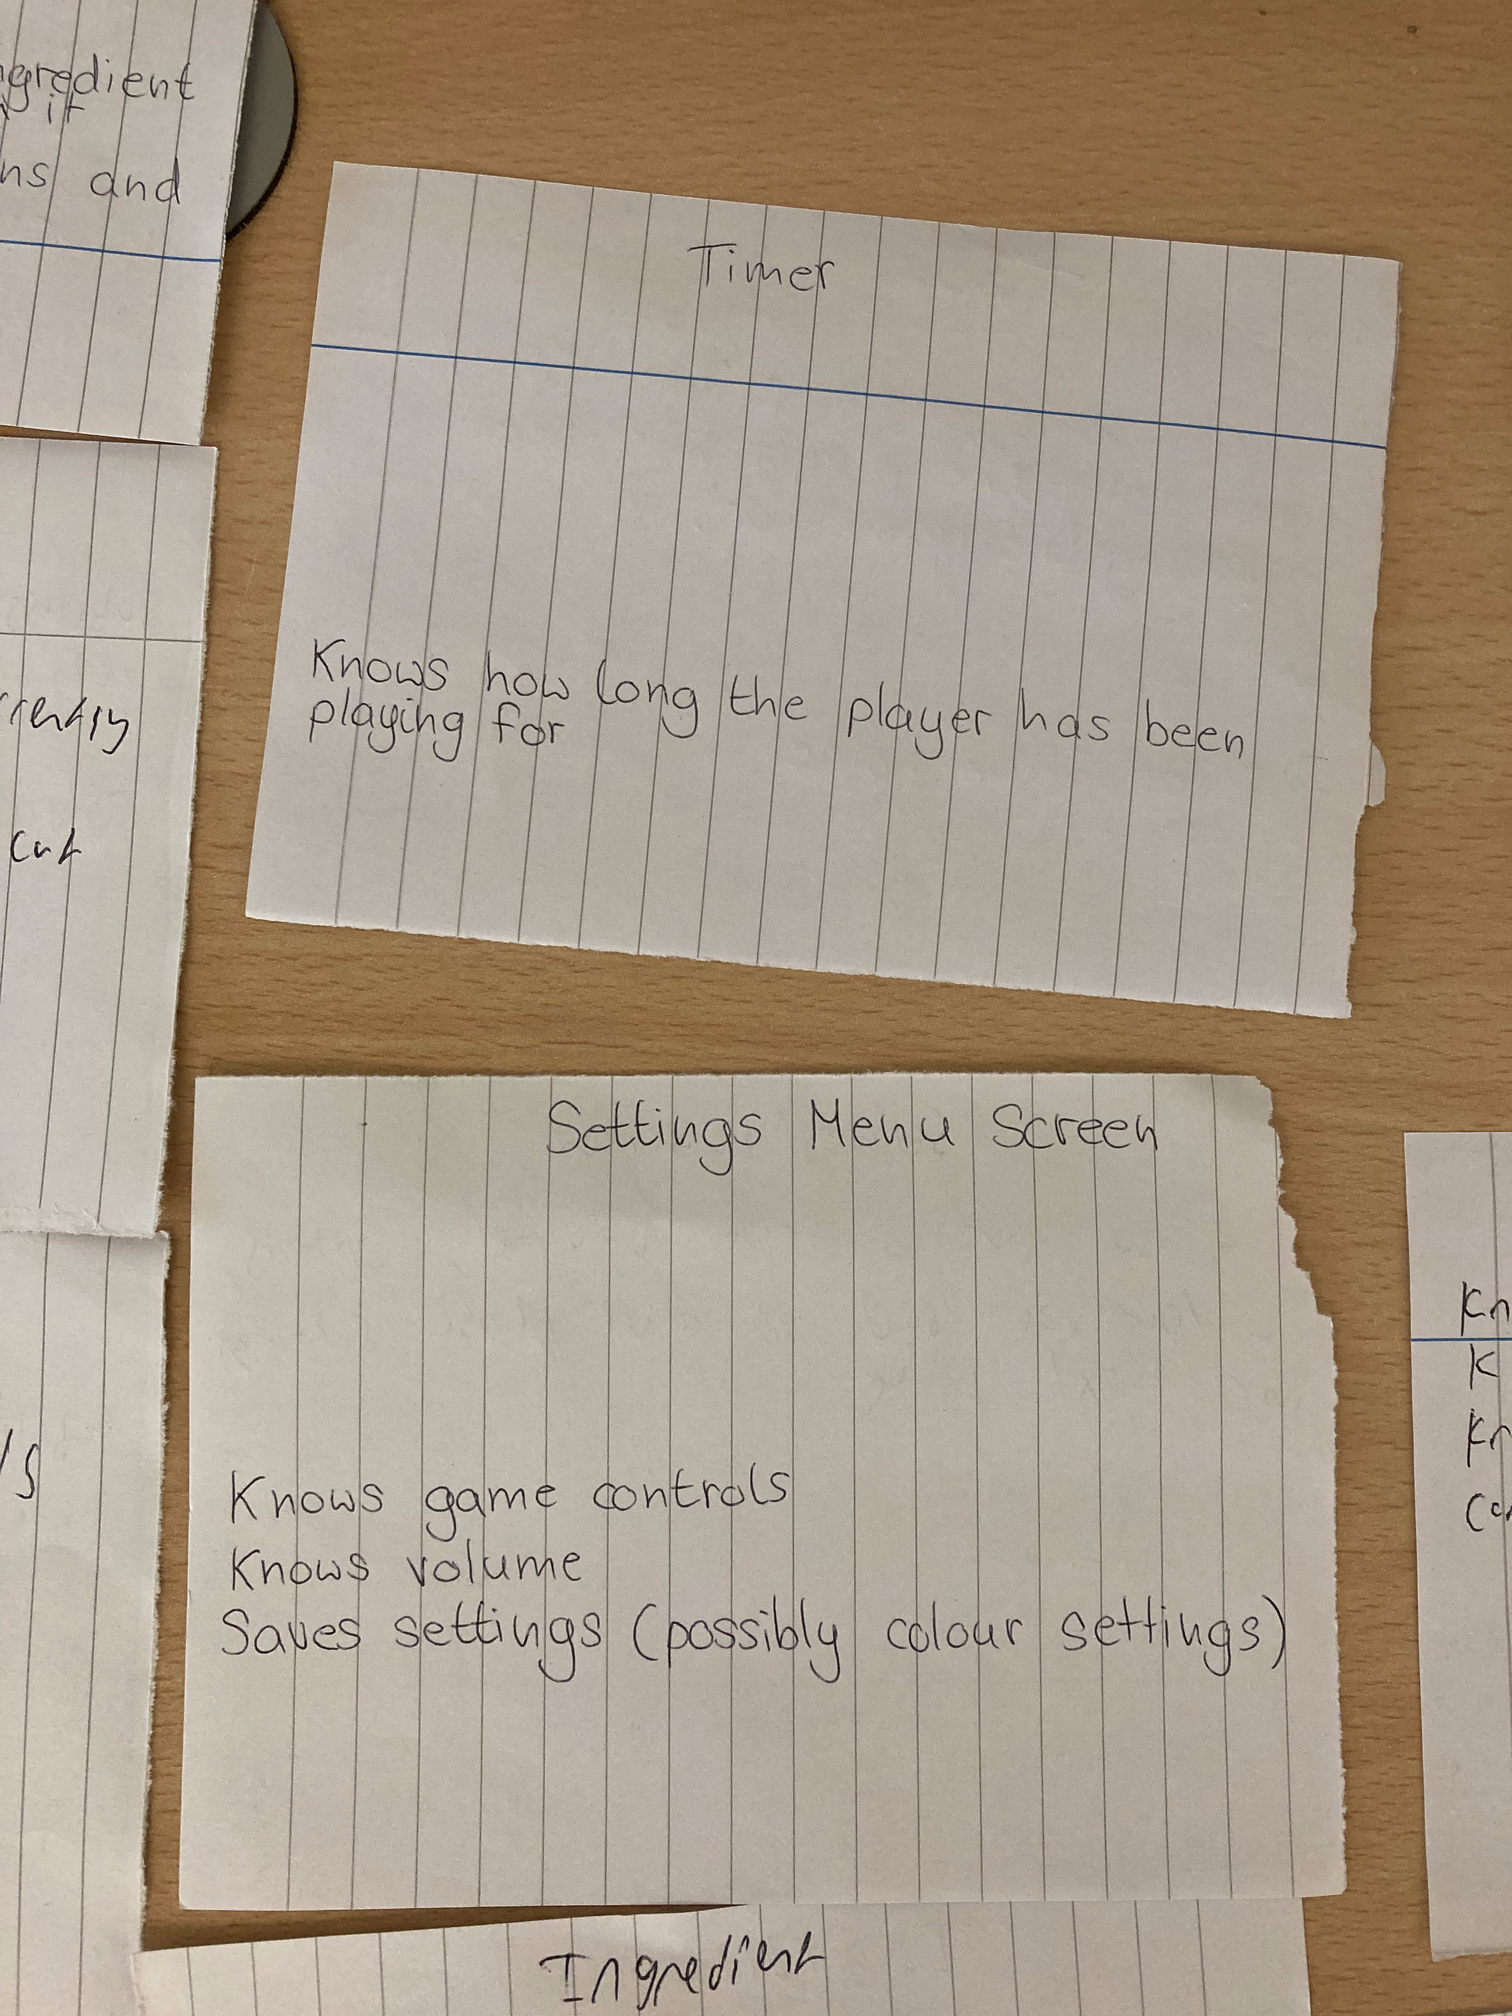 ngredient
it
ns and
Timer
Knows how long the player has been
playing for
cut
Settings Menu Screen
Knows game controls
Knows volume
Saves settings (possibly colour settings)
Kn
K
Kn
Ingredient